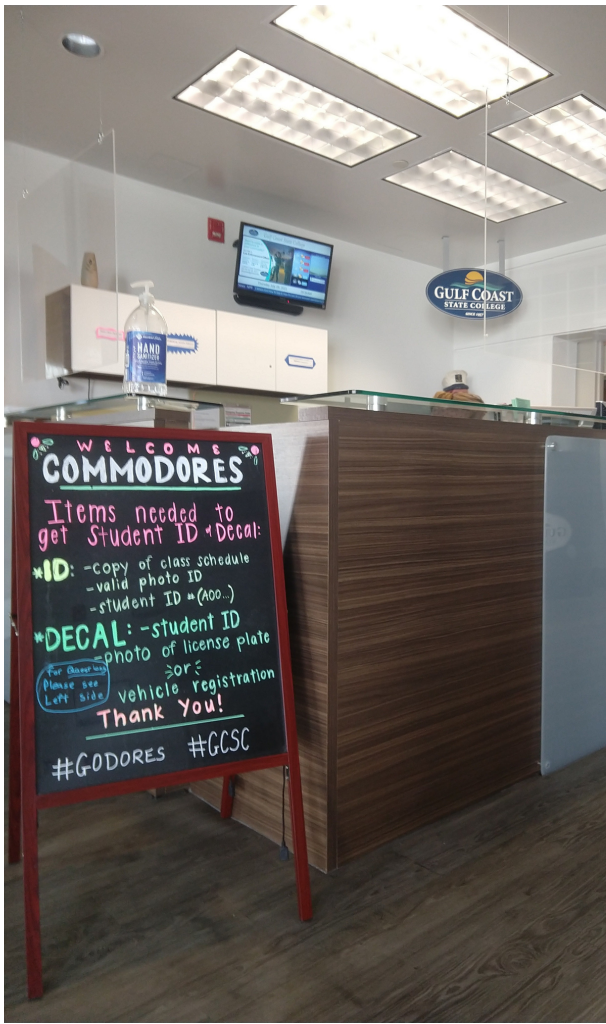 GULF COAST
STATE COLLEGE
SINCE 1957
HAND
SANITIZER
WELCOME
COMMODORES
Items needed to
get Student ID & Decal:
*ID: -copy of class schedule
-valid photo ID
-student ID # (A00...)
*DECAL: -student ID
-photo of license plate
or
vehicle registration
Please see
Left side
Thank You!
#GODORES #GCSC